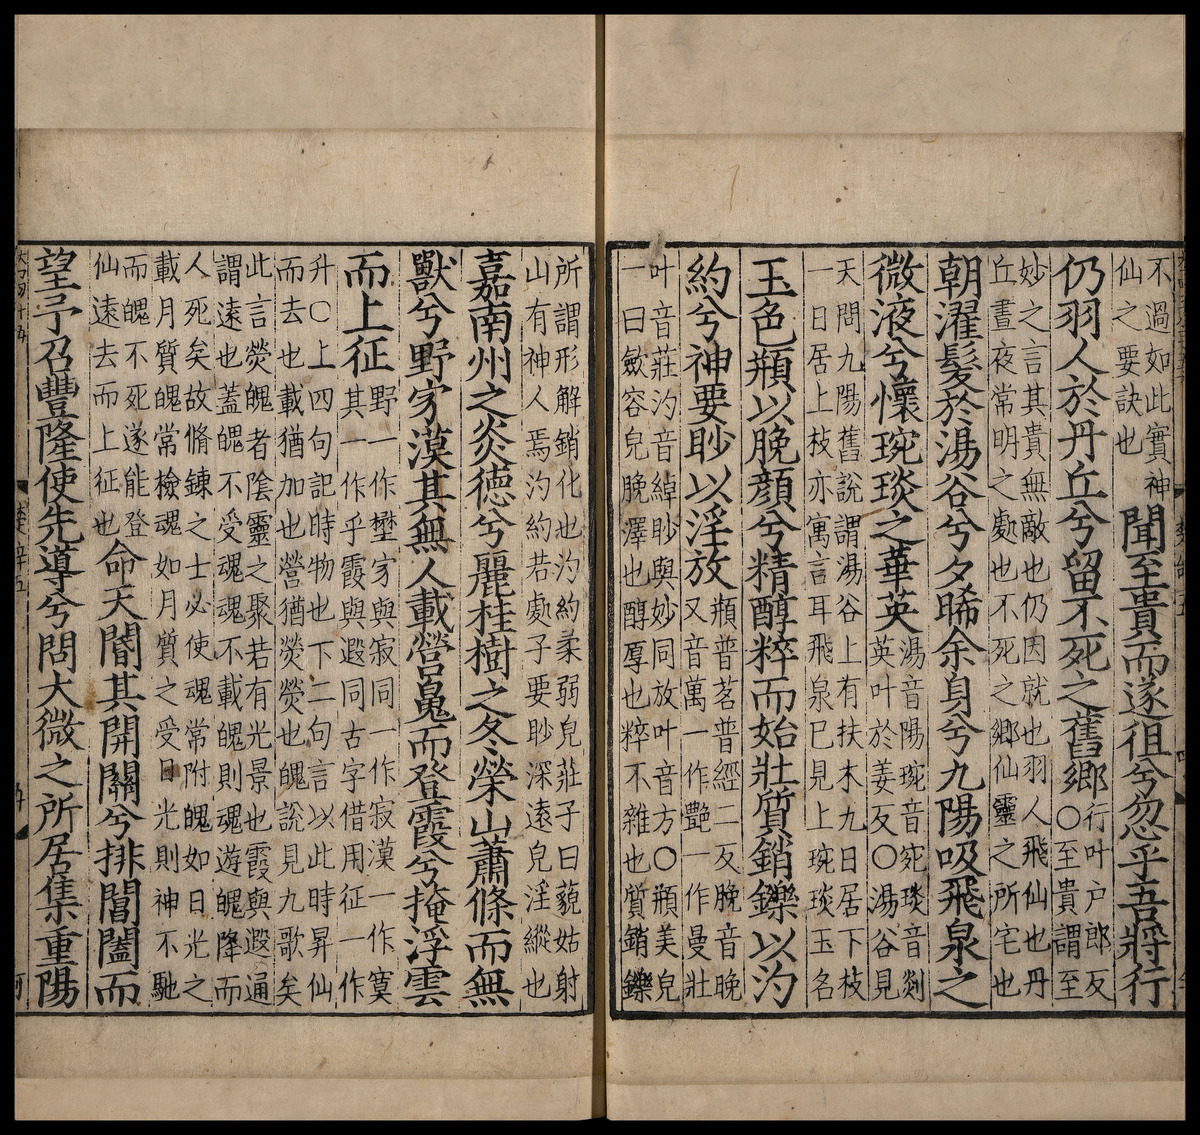 不過如此實神
仙之要訣也
聞至貴而遂徂兮忽乎吾將行
仍羽人於丹丘兮留不死之舊鄉
行叶户郎反
〇至貴謂至
妙之言其貴無敵也仍因就也羽人飛仙也丹
丘晝夜常明之處也不死之鄉仙靈之所宅也
朝濯髮於湯谷兮夕晞余身兮九陽吸飛泉之
微液兮懷琬琰之華英
湯音陽琬音宛琰音剡
英叶於姜反〇湯谷見
天問九陽舊說謂湯谷上有扶木九日居下枝
一日居上枝亦寓言耳飛泉已見上琬琰玉名
玉色頩以脕顏兮精醇粹而始壯質銷鑠以汋
約兮神要眇以淫放
頩普茗普經二反脕音晚
又音萬一作艷一作曼壯
叶音莊汋音綽眇與妙同放叶音方〇頩美皃
一曰斂容皃脕澤也醇厚也粹不雜也質銷鑠
所謂形解銷化也汋約柔弱皃莊子曰藐姑射
山有神人焉汋約若處子要眇深遠皃淫縱也
嘉南州之炎德兮麗桂樹之冬榮山蕭條而無
獸兮野㝱漠其無人載營魄而登霞兮掩浮雲
而上征
野一作壄與寂同一作寂漠一作寞
其一作乎霞與遐同古字借用征一作
升〇上四句記時物也下二句言以此時昇仙
而去也載猶加也營猶熒熒也魄說見九歌矣
此言熒魄者陰靈之聚若有光景也霞與遐通
謂遠也蓋魄不受魂魂不載魄則魂遊魄降而
人死矣故脩鍊之士必使魂常附魄如日光之
載月質魄常檢魂如月質之受日光則神不馳
而魄不死遂能登
仙遠去而上征也
命天閽其開關兮排閶闔而
望予召豐隆使先導兮問大微之所居集重陽